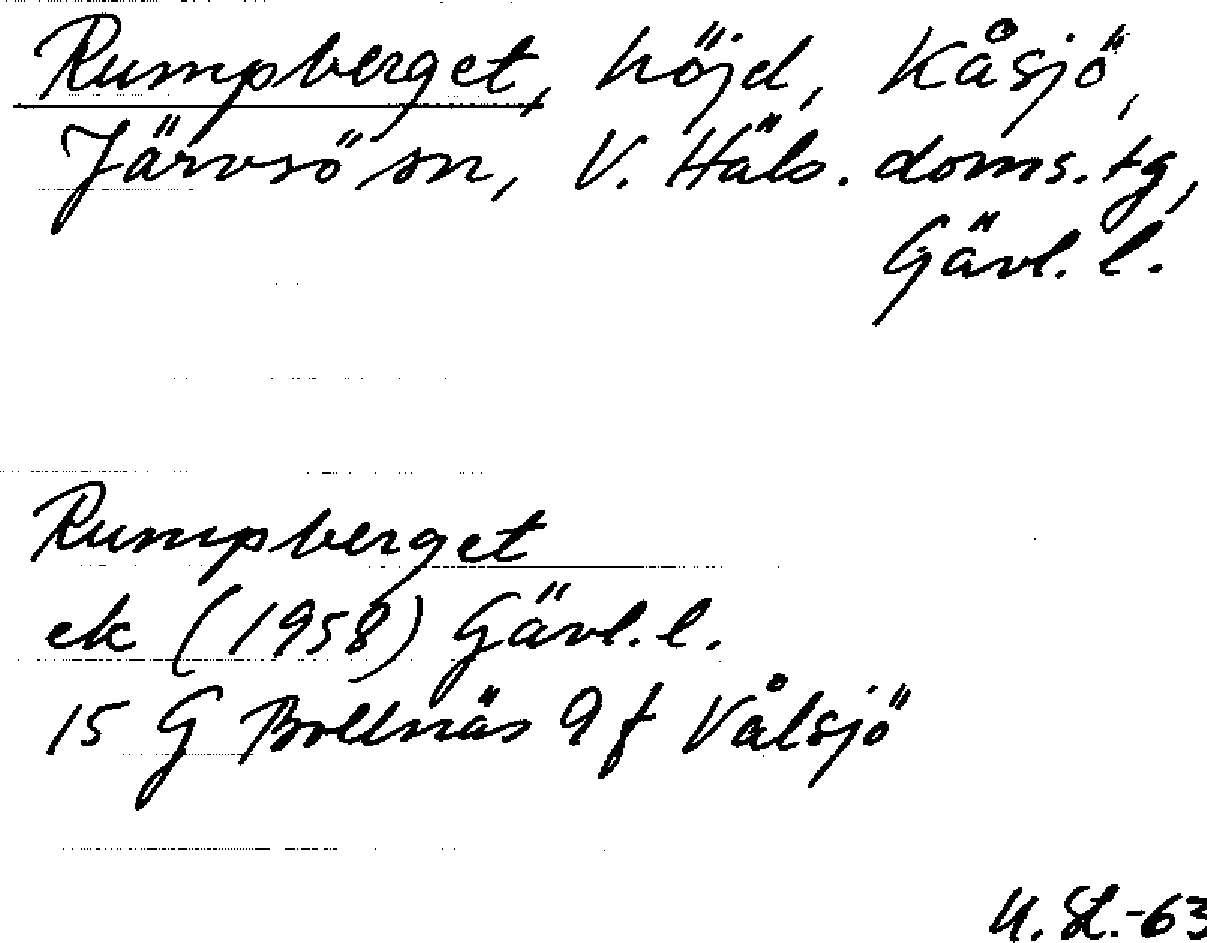 Rumpberget, höjd, Kåsjö,
Järvsö sn, V. Häls. doms. tg,
Gävl. l.
Rumpberget
ek (1958) Gävl. l.
15 G Bollnäs 9 f Vålsjö
U. St.-63